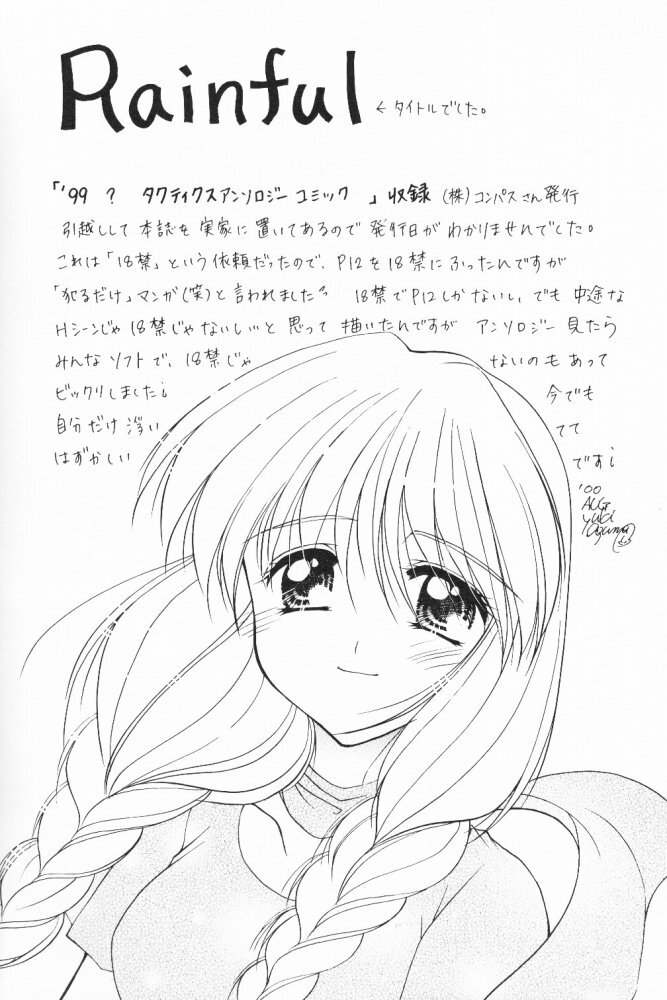 Rainful ←タイトルでした。
「'99 ? タクティクスアンソロジーコミック 」収録 (株)コンパスさん発行
引越しして本誌を実家に置いてあるので発行日がわかりませんでした。
これは「18禁」という依頼だったので、P12を18禁にふったんですが
「犯るだけ」マンガ(笑)と言われました 18禁でP12しかないし、でも中途な
Hシーンじゃ18禁じゃないし…と思って描いたんですが アンソロジー見たら
みんなソフトで、18禁じゃ ないのもあって
ビックリしました¡ 今でも
自分だけ浮い てて
はずかしい です¡
'00
Aug
yuki